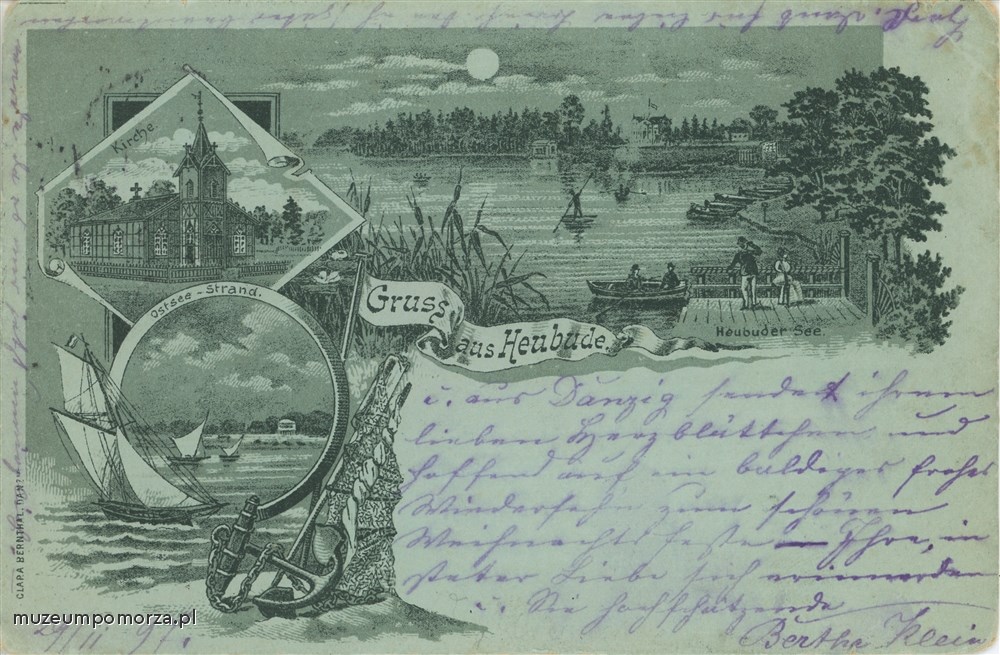 Kirche
Ostsee-Strand.
Gruss
aus Heubude.
Heubuder See.
u. aus Danzig sendet ihrem
lieben Herzblättchen und
hoffend auf ein baldiges frohes
Wiedersehn zum schönen
Weihnachtsfeste — Ihre, in
steter Liebe sich
u. Sie hochschätzende
Bertha Klein
29/11 97.
CLARA BERNTHAL, DANZ
muzeumpomorza.pl